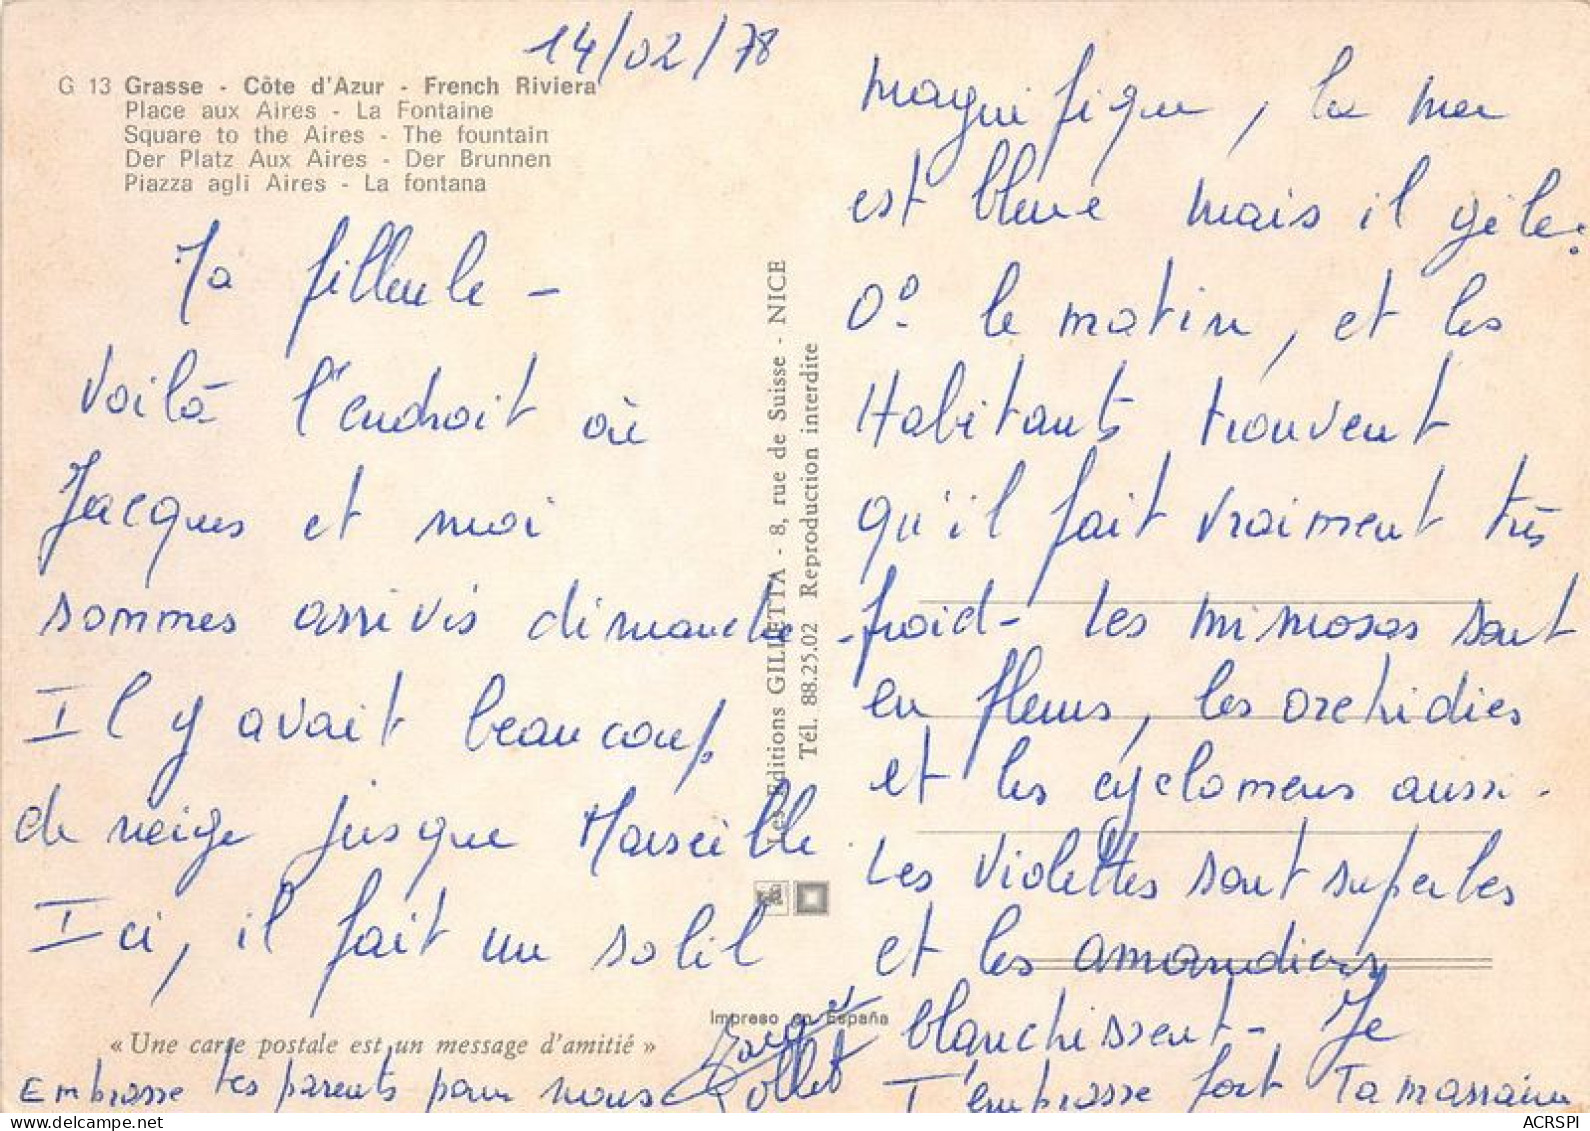 14/02/78
G 13 Grasse - Côte d'Azur - French Riviera
Place aux Aires - La Fontaine
Square to the Aires - The fountain
Der Platz Aux Aires - Der Brunnen
Piazza agli Aires - La fontana
Ma filleule -
Voilà l'endroit où
Jacques et moi
sommes arrivés dimanche -
Il y avait beaucoup
de neige jusque Marseille
Ici, il fait un soleil
magnifique, la mer
est bleue mais il gèle :
0° le matin, et les
Habitants trouvent
qu'il fait vraiment très
froid - Les mimosas sont
en fleurs, les orchidées
et les cyclamens aussi -
Les Violettes sont superbes
et les amandiers
blanchissent - Je
T'embrasse fort Ta marraine
Embrasse tes parents pour nous
Les Editions GILLETTA - 8, rue de Suisse - NICE
Tél. 88.25.02 Reproduction interdite
Impreso en España
« Une carte postale est un message d'amitié »
ACRSPI